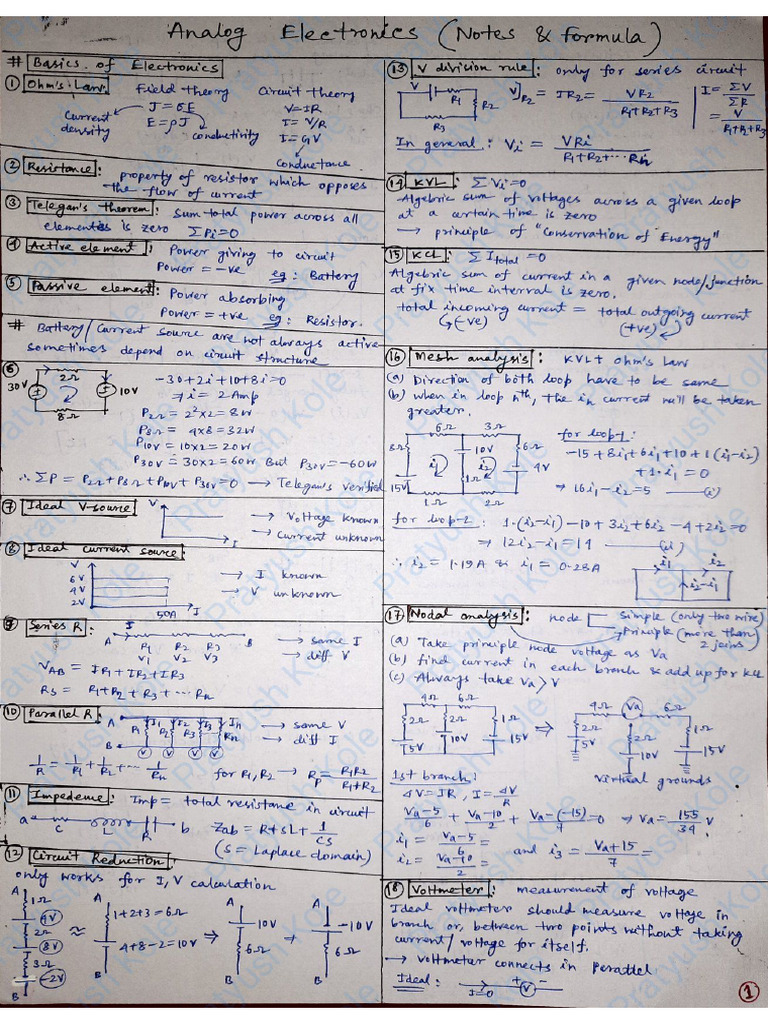 Analog Electronics (Notes & formula)
# Basics of Electronics
① Ohm's Law: Field theory Circuit theory
J = σE V = IR
Current density E = ρJ conductivity I = V/R
I = GV
Conductance
② Resistance: property of resistor which opposes
the flow of current
③ Telegan's theorem: Sum total power across all
elements is zero ΣPi=0
④ Active element: Power giving to circuit
Power = -ve eg: Battery
⑤ Passive element: Power absorbing
Power = +ve eg: Resistor.
# Battery/Current source are not always active
sometimes depend on circuit structure
⑥ 2Ω 30V 10V 8Ω
-30+2i+10+8i=0
⇒ i = 2 Amp
P2Ω = 2²×2 = 8W
P8Ω = 4×8 = 32W
P10V = 10×2 = 20W
P30V = 30×2 = 60W But P30V = -60W
∴ ΣP = P2Ω + P8Ω + P10V + P30V = 0 → Telegan's verified
⑦ Ideal V-source V I → Voltage known
→ Current unknown
⑧ Ideal current source: → I known
V 6V 4V 2V 50A I → V unknown
⑨ Series R: A R1 R2 R3 B → same I
V1 V2 V3 → diff V
VAB = IR1 + IR2 + IR3
Rs = R1+R2+R3+...Rn
⑩ Parallel R: A I1 I2 I3 In → same V
B R1 R2 R3 Rn V V V V → diff I
1/R = 1/R1 + 1/R2 + ... 1/Rn for R1, R2 → Rp = R1R2/R1+R2
⑪ Impedeme: Imp = total resistane in circuit
a C L R b Zab = R + SL + 1/CS
(S = Laplace domain)
⑫ Circuit Reduction:
only works for I, V calculation
A 1Ω 4V 2Ω 8V 3Ω -2V B
≈ A 1+2+3=6Ω 4+8-2=10V B
⇒ A 10V 6Ω B ⇒ A -10V 6Ω B
⑬ V division rule: only for series circuit
V R1 R2 R3 V]R2 = IR2 = VR2/R1+R2+R3
I = ΣV/ΣR = V/R1+R2+R3
In general: Vi = VRi/R1+R2+...Rn
⑭ KVL: ΣVi=0
Algebric sum of voltages across a given loop
at a certain time is zero
→ principle of "Conservation of Energy"
⑮ KCL: ΣItotal = 0
Algebric sum of current in a given node/junction
at fix time interval is zero.
total incoming current = total outgoing current
(-ve) (+ve)
⑯ Mesh analysis: KVL + Ohm's Law
(a) Direction of both loop have to be same
(b) when in loop nth, the in current will be taken
greater.
6Ω 3Ω 8Ω 10V 6Ω i1 i2 1Ω 4V 15V 1Ω 2Ω
for loop-1:
-15+8i1+6i1+10+1(i1-i2)
+1·i1 = 0
⇒ 16i1-i2=5 —(i)
for loop-2: 1·(i2-i1)-10+3i2+6i2-4+2i2=0
⇒ 12i2-i1=14 —(ii)
∴ i2 = 1.19A & i1 = 0.28A i1 i2 i2-i1
⑰ Nodal analysis: node simple (only two wire)
principle (more than 2 joins)
(a) Take principle node voltage as Va
(b) find current in each branch & add up for KCL
(c) Always take Va > V
4Ω 6Ω 2Ω 2Ω 1Ω 5V 10V 15V ⇒ 4Ω Va 6Ω 2Ω 5V 2Ω 10V 1Ω 15V
virtual grounds
1st branch:
ΔV = IR, I = ΔV/R
Va-5/6 + Va-10/2 + Va-(-15)/7 = 0 ⇒ Va = 155/34 V
i1 = Va-5/6 =
i2 = Va-10/2 = and i3 = Va+15/7 =
⑱ Voltmeter: measurement of voltage
Ideal voltmeter should measure voltage in
branch or, between two points without taking
current/voltage for itself.
→ voltmeter connects in parallel
Ideal: I=0 + V -
①
Pratyush Kole